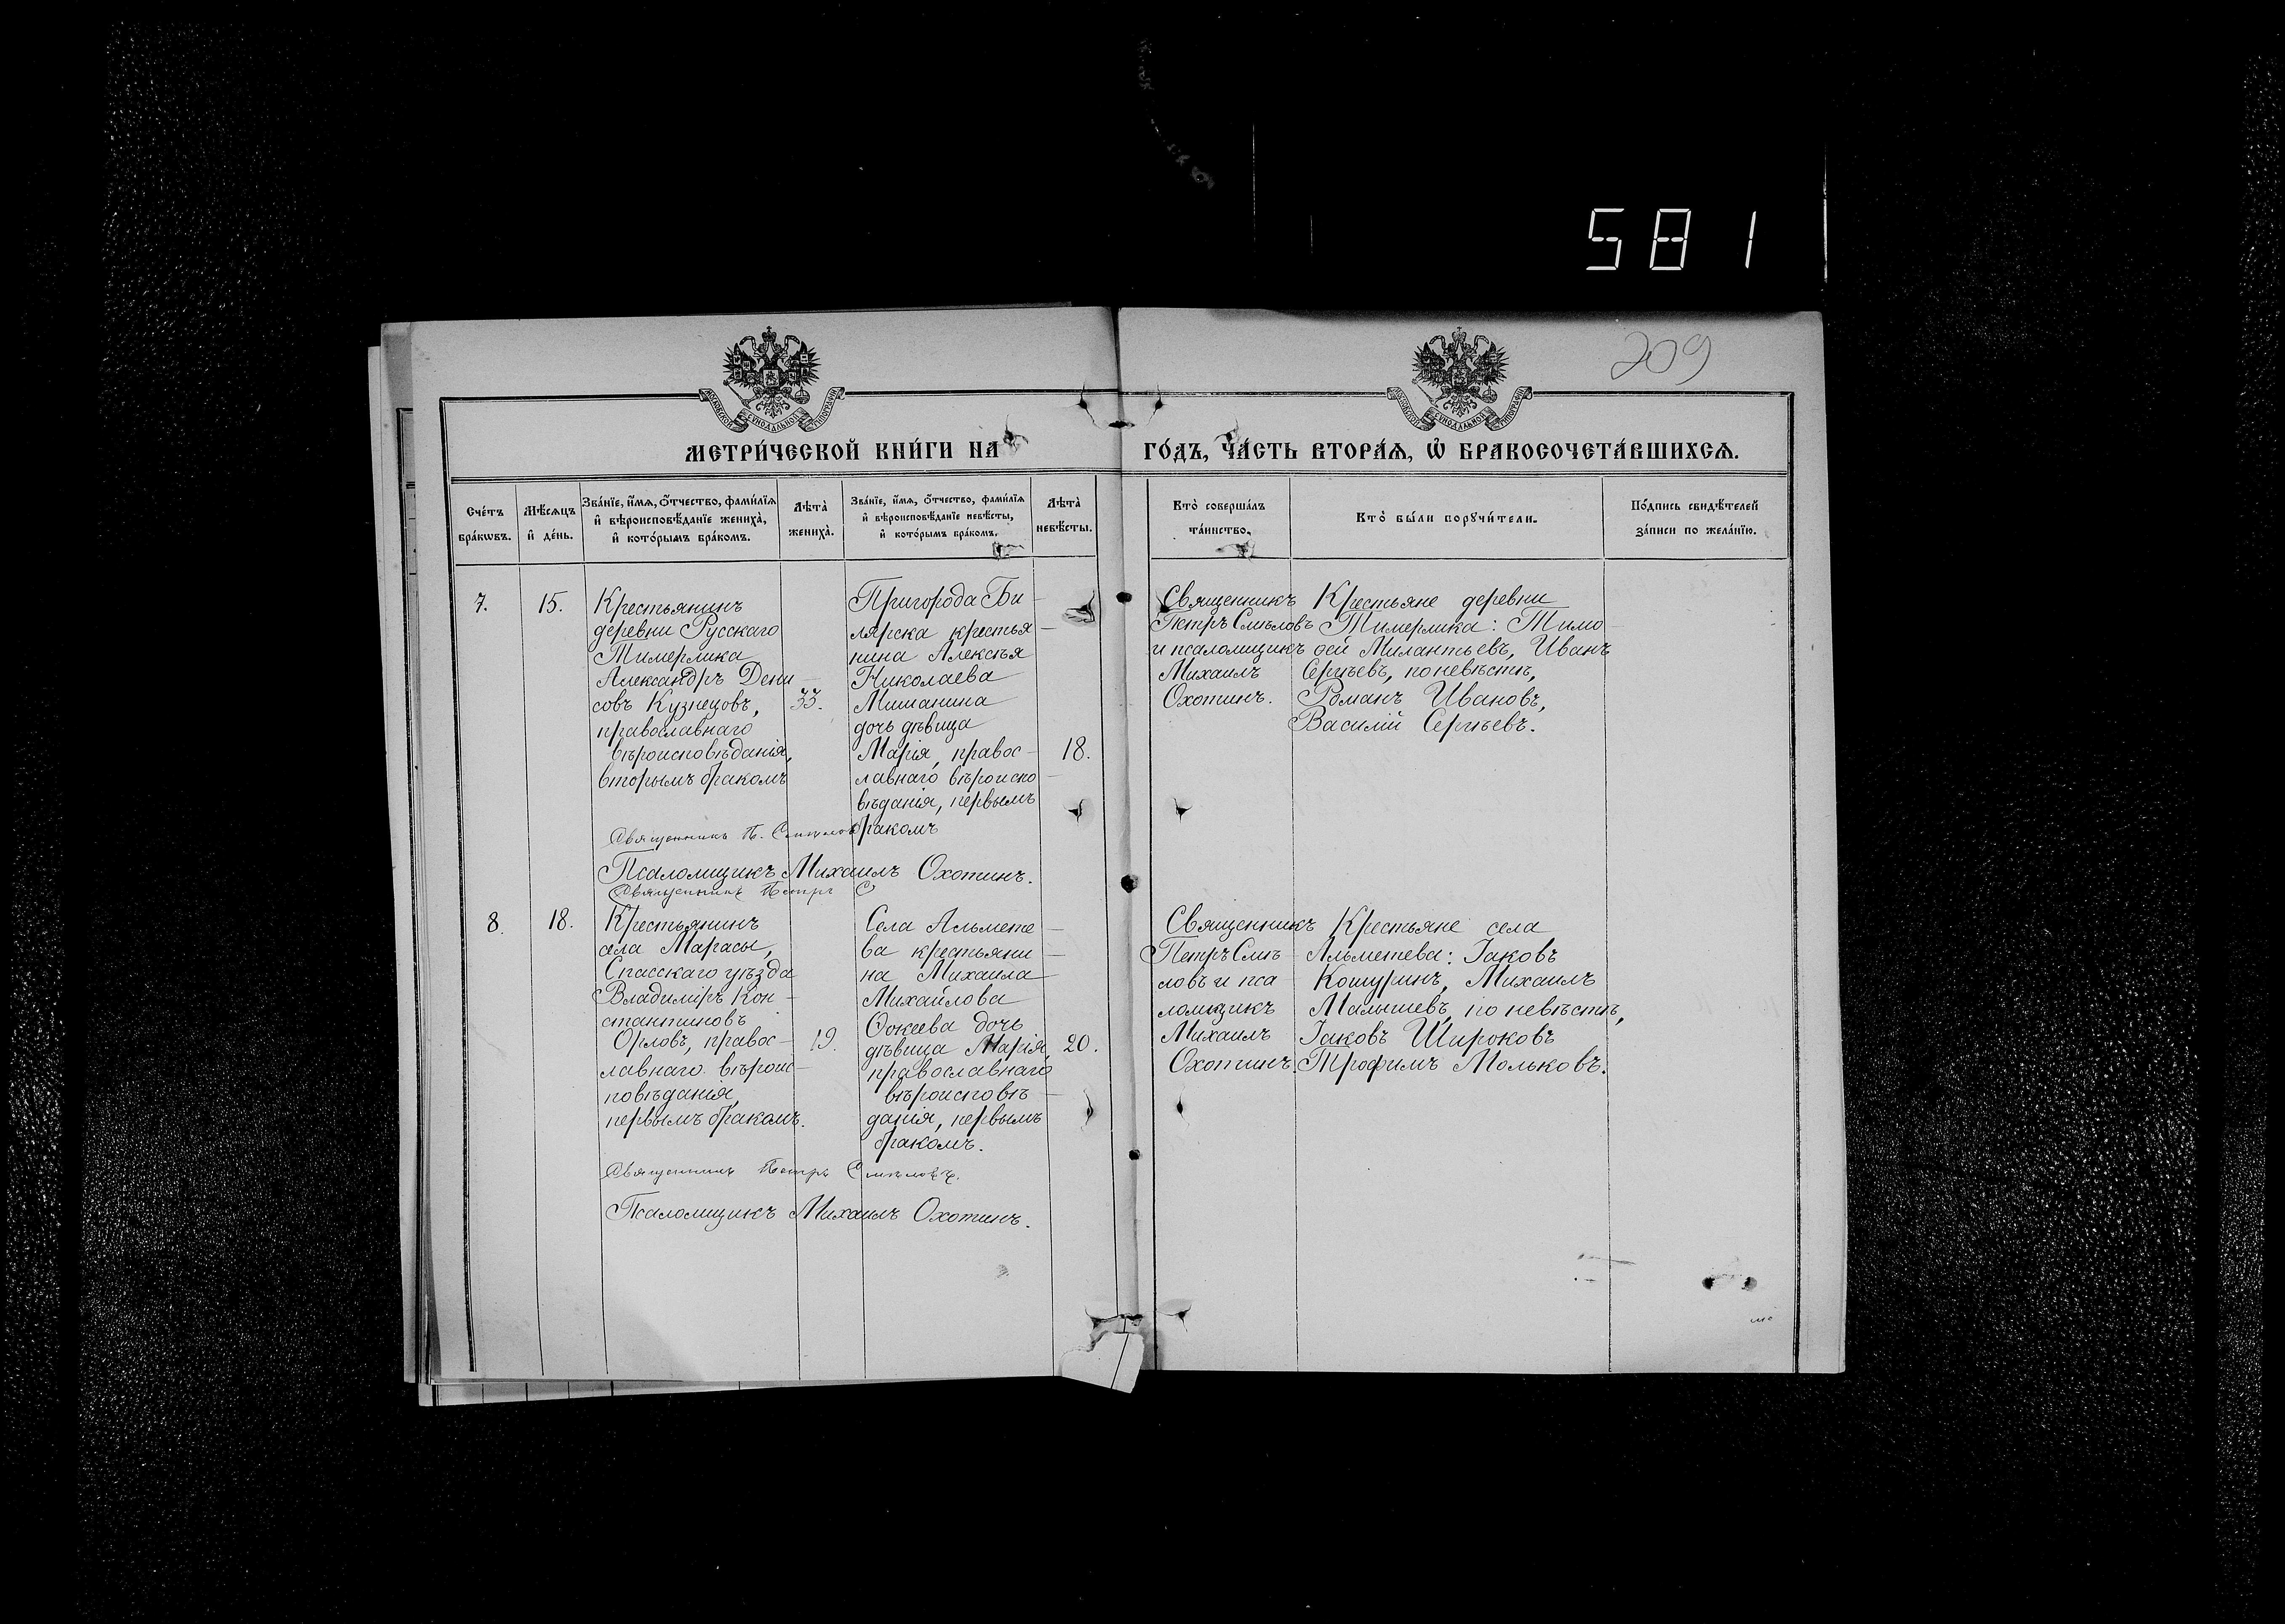 581
209
МОСКОВСКОЙ СѴНОДАЛЬНОЙ ТИПОГРАФІИ
МОСКОВСКОЙ СѴНОДАЛЬНОЙ ТИПОГРАФІИ
МЕТРИ́ЧЕСКОЙ КНИ́ГИ НА ГО́ДЪ, ЧА́СТЬ ВТОРА́Ѧ, Ѽ БРАКОСОЧЕТА́ВШИХСѦ.
Сче́тъ бра́кѡвъ.
Мѣ́сѧцъ и҆ де́нь.
Зва́нїе, и҆́мѧ, ѻ҆́тчество, фами́лїѧ и҆ вѣроисповѣ́данїе жениха̀, и҆ кото́рымъ бра́комъ.
Лѣ́та̀ жениха̀.
Зва́нїе, и҆́мѧ, ѻ҆́тчество, фами́лїѧ и҆ вѣроисповѣ́данїе невѣ́сты, и҆ кото́рымъ бра́комъ.
Лѣ́та̀ невѣ́сты.
Кто̀ соверша́лъ та́инство.
Кто̀ бы́ли порꙋчи́тели.
По́дпись свидѣ́телей за́писи по жела́нїю.
7.
15.
Крестьянинъ
деревни Русскаго
Тимерлика
Александръ Дени-
совъ Кузнецовъ,
православнаго
вѣроисповѣданія,
вторымъ бракомъ
33.
Пригорода Би-
лярска крестья-
нина Алексѣя
Николаева
Мишанина
дочь дѣвица
Марія, правос-
лавнаго вѣроиспо-
вѣданія, первымъ
бракомъ
18.
Священникъ
Петръ Смѣловъ
и псаломщикъ
Михаилъ
Охотинъ.
Крестьяне деревни
Тимерлика: Тимо-
ѳей Милантьевъ, Иванъ
Сергѣевъ, по невѣстѣ,
Романъ Ивановъ,
Василій Сергѣевъ.
Священникъ П. Смѣловъ
Псаломщикъ Михаилъ Охотинъ.
Священникъ Петръ С
8.
18.
Крестьянинъ
села Марасы,
Спасскаго уѣзда
Владиміръ Кон-
стантиновъ
Орловъ, правос-
лавнаго вѣроис-
повѣданія,
первымъ бракомъ.
19.
Села Альмете-
ва крестьяни-
на Михаила
Михайлова
Ѳокеева дочь
дѣвица Марія,
православнаго
вѣроисповѣ-
данія, первымъ
бракомъ.
20.
Священникъ
Петръ Смѣ-
ловъ и пса
ломщикъ
Михаилъ
Охотинъ.
Крестьяне села
Альметева: Іаковъ
Кошуринъ, Михаилъ
Малышевъ, по невѣстѣ,
Іаковъ Широковъ
Трофимъ Мольковъ.
Священникъ Петръ Смѣловъ.
Псаломщикъ Михаилъ Охотинъ.